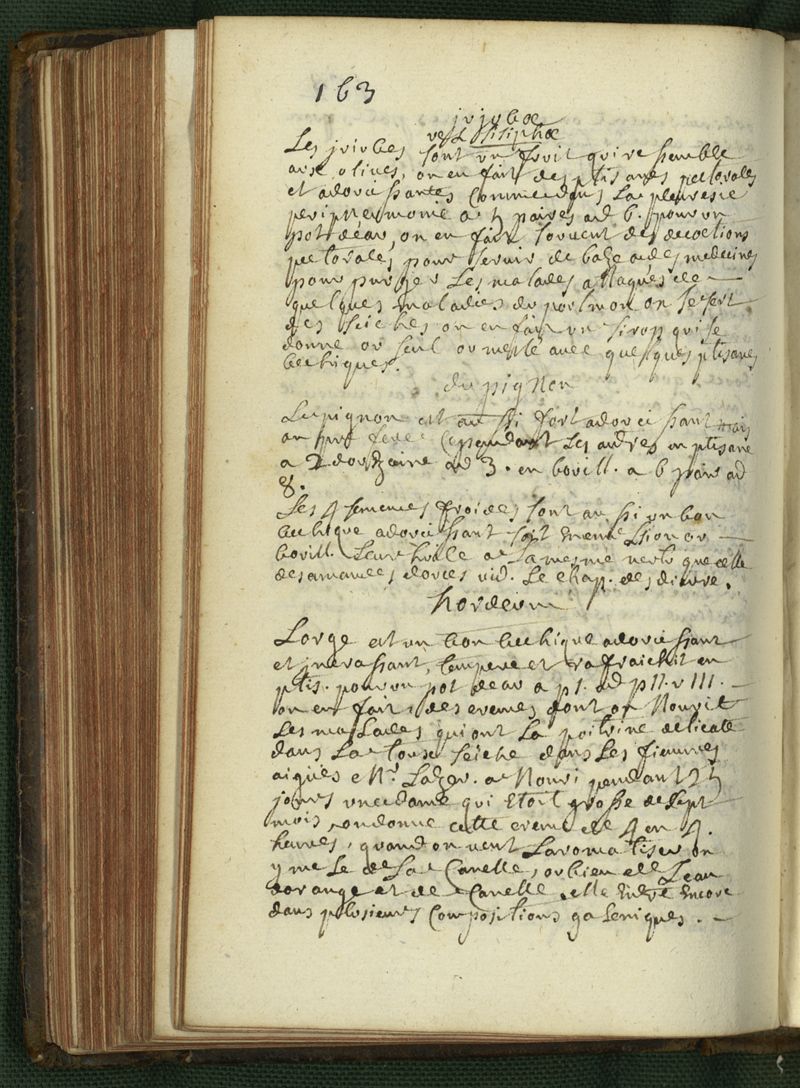 163
jujubœ
vel Sisiphœ
Les jujubes sont un fruit qui ressemble
aux olives, on en fait des ptisanes pectorales
et adoucissantes comme dans La pleuresie
peripneumonie a 5 paires ad 6. pour un
pot deau, on en fait souvent des decoctions
pectorales, pour servir de baze a des medecines
pour purger Les malades attaques de
quelques maladies du poulmon on se sert
des seiches on en fait un sirop qui se
donne ou seul ou meslé avec quelques ptisanes
bechiques.
du pignon
Le pignon est aussi fort adoucissant mais
un peu cependant Les autres en ptisane
a 2 douzaine ad 3. en bouill. a 6 pair ad
8.
Les 4 semences froides sont aussi un bon
bechique adoucissant soit en emulsion ou
bouill. Leur huille a La mesme vertu que celle
des amandes douces vid. Le chap. des diure.
hordeum
Lorge est un bon bechique adoucissant
et incrassant, tempere et rafraichit en
ptis. pour un pot deau a p1. ad p11. v 111.
on en fait des cremes dont on Nourit
Les mallades qui ont La poitrine delicate
dans La toux seiche dans Les fieuvres
aigües e Mr. Lazer. a Nouri pendant 25
jours une dame qui Etoit grosse de sept
mois on donne cette creme de 4 en 4.
heures, quand on veut Laromatiser on
y mele de La Canelle, ou bien de Leau
dorange et de Canelle elle Entre Encore
dans plusieurs Compositions galeniques.